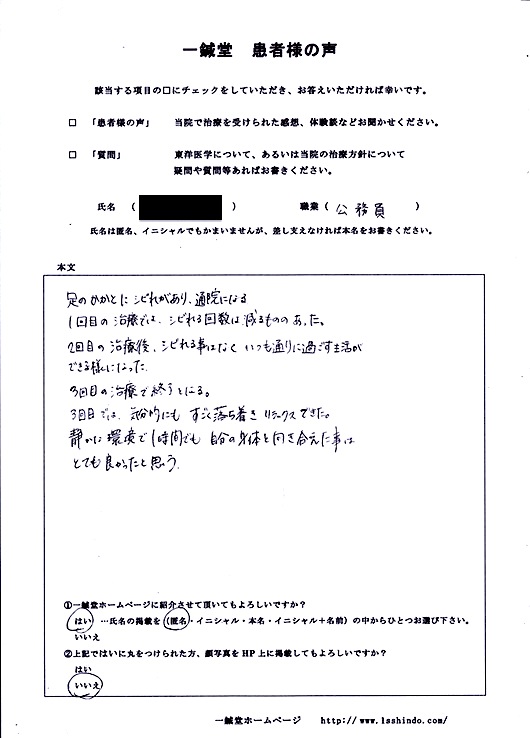 一鍼堂 患者様の声
該当する項目の□にチェックをしていただき、お答えいただければ幸いです。
□ 「患者様の声」 当院で治療を受けられた感想、体験談などお聞かせください。
□ 「質問」 東洋医学について、あるいは当院の治療方針について
疑問や質問等あればお書きください。
氏名 ( ) 職業 ( 公務員 )
氏名は匿名、イニシャルでもかまいませんが、差し支えなければ本名をお書きください。
本文
足のかかとにシビれがあり、通院になる
1回目の治療では、シビれる回数は減るもののあった。
2回目の治療後、シビれる事はなくいつも通りに過ごす生活が
できる様になった。
3回目の治療で終了となる。
3回目では、気分的にもすごく落ち着きリラックスできた。
静かな環境で1時間でも自分の身体と向き合えた事は
とても良かったと思う。
①一鍼堂ホームページに紹介させて頂いてもよろしいですか?
はい …氏名の掲載を(匿名・イニシャル・本名・イニシャル+名前)の中からひとつお選び下さい。
いいえ
②上記ではいに丸をつけられた方、顔写真をHP上に掲載してもよろしいですか?
はい
いいえ
一鍼堂ホームページ http://www.1sshindo.com/